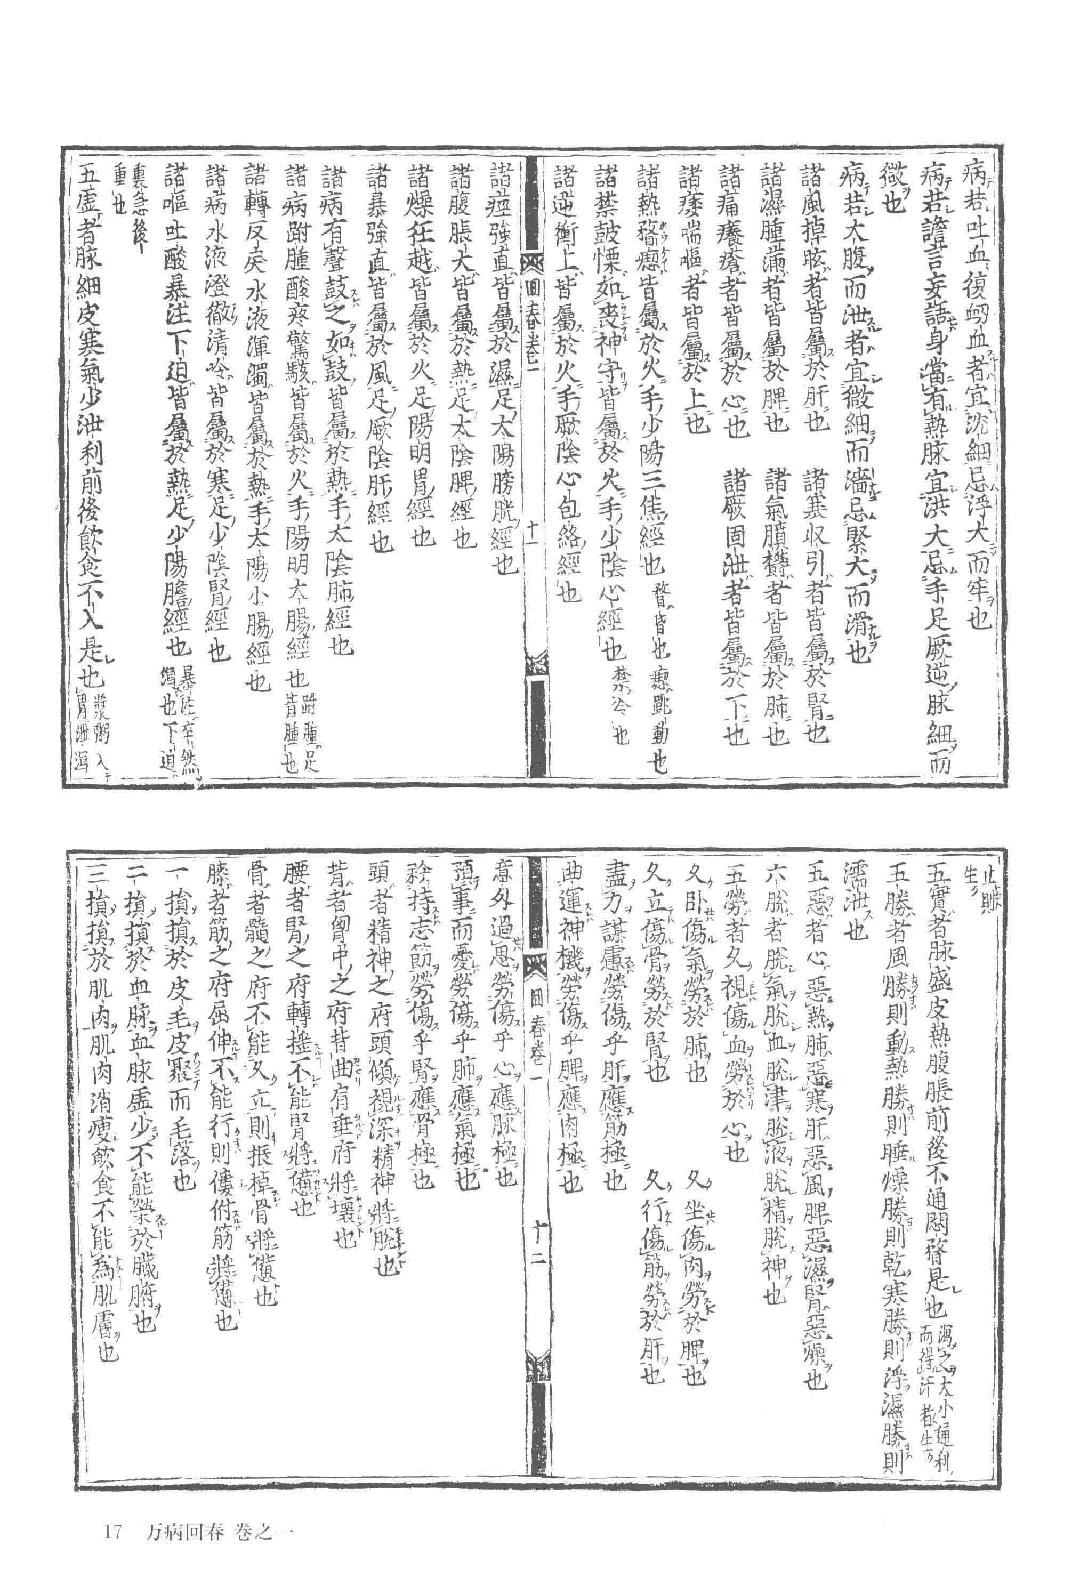 病若吐血復衂血者宜沈細忌浮大而牢也
病若譫言妄語身當有熱脉宜洪大忌手足厥逆脉細而
微也
病若大腹而泄者宜微細而濇忌緊大而滑也
諸風掉眩者皆屬於肝也 諸寒収引者皆屬於腎也
諸濕腫滿者皆屬於脾也 諸氣膹欝者皆屬於肺也
諸痛癢瘡者皆屬於心也 諸厥固泄者皆屬於下也
諸痿喘嘔者皆屬於上也
諸熱瞀瘛皆屬於火手少陽三焦經也 瞀昏也 瘛跳動也
諸禁鼓慄如喪神守皆屬於火手少陰心經也 禁冷也
諸逆衝上皆屬於火手厥陰心包絡經也
回春卷一 十一
諸痙強直皆屬於濕足太陽膀胱經也
諸腹脹大皆屬於熱足太陰脾經也
諸燥狂越皆屬於火足陽明胃經也
諸暴強直皆屬於風足厥陰肝經也
諸病有聲鼓之如鼓皆屬於熱手太陰肺經也
諸病跗腫酸疼驚駭皆屬於火手陽明大腸經也 跗腫足背腫也
諸轉反戾水液渾濁皆屬於熱手太陽小腸經也
諸病水液澄徹清冷皆屬於寒足少陰腎經也
諸嘔吐酸暴注下迫皆屬於熱足少陽膽經也 暴注卒然瀉也下迫
裏急後
重也
五虛者脉細皮寒氣少泄利前後飲食不入是也 漿粥入胃泄瀉
止則
生
五實者脉盛皮熱腹脹前後不通悶瞀是也 瀉之大小通利而得汗者生
五勝者風勝則動熱勝則腫燥勝則乾寒勝則浮濕勝則
濡泄也
五惡者心惡熱肺惡寒肝惡風脾惡濕腎惡燥也
六脫者脫氣脫血脫津脫液脫精脫神也
五勞者久視傷血勞於心也
久卧傷氣勞於肺也 久坐傷肉勞於脾也
久立傷骨勞於腎也 久行傷筋勞於肝也
盡力謀慮勞傷乎肝應筋極也
曲運神機勞傷乎脾應肉極也
回春卷一 十二
意外過思勞傷乎心應脉極也
預事而憂勞傷乎肺應氣極也
矜持志節勞傷乎腎應骨極也
頭者精神之府頭傾視深精神將脫也
背者胷中之府背曲肩垂府將壞也
腰者腎之府轉搖不能腎將憊也
骨者髓之府不能久立則振掉骨將憊也
膝者筋之府屈伸不能行則僂俯筋將憊也
一損損於皮毛皮聚而毛落也
二損損於血脉血脉虛少不能榮於臟腑也
三損損於肌肉肌肉消瘦飲食不能為肌膚也
17 万病回春 巻之一